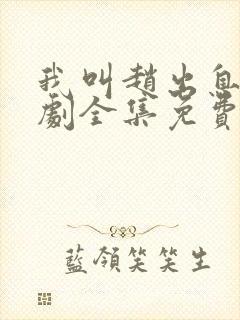 我叫趙出息
劇全集免費
藍領笑笑生